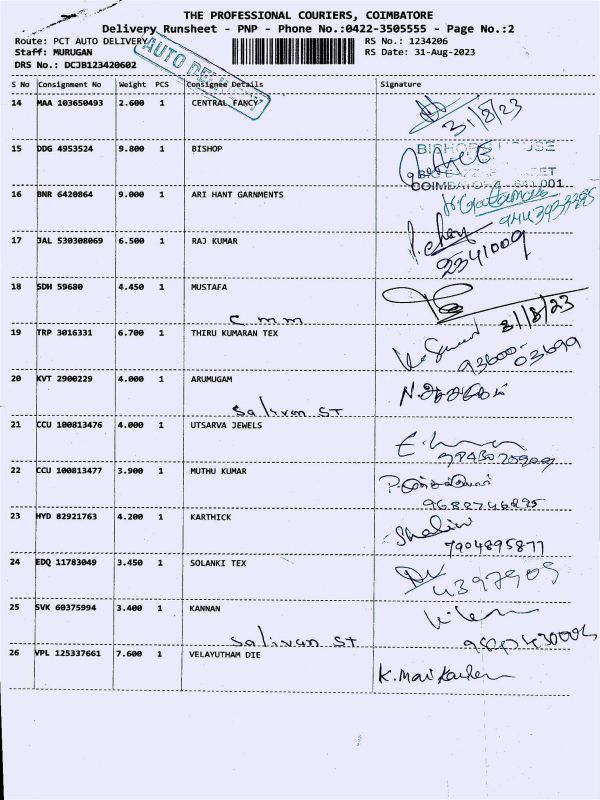 THE PROFESSIONAL COURIERS, COIMBATORE
Delivery Runsheet - PNP - Phone No.:0422-3505555 - Page No.:2
Route: PCT AUTO DELIVERY RS No.: 1234206
Staff: MURUGAN RS Date: 31-Aug-2023
DRS No.: DCJB123420602
AUTO DELIVERY
S No Consignment No Weight PCS Consignee Details Signature
14 MAA 103650493 2.600 1 CENTRAL FANCY
31/8/23
15 DDG 4953524 9.800 1 BISHOP
BISHOP'S HOUSE
COIMBATORE - 641 001.
16 BNR 6420864 9.000 1 ARI HANT GARNMENTS
17 JAL 530308069 6.500 1 RAJ KUMAR
2341009
18 SDH 59680 4.450 1 MUSTAFA
cmm 31/8/23
19 TRP 3016331 6.700 1 THIRU KUMARAN TEX
93600-03699
20 KVT 2900229 4.000 1 ARUMUGAM
Salivan ST
21 CCU 100813476 4.000 1 UTSARVA JEWELS
22 CCU 100813477 3.900 1 MUTHU KUMAR
23 HYD 82921763 4.200 1 KARTHICK
Shalini
7904895877
24 EDQ 11783049 3.450 1 SOLANKI TEX
4397909
25 SVK 60375994 3.400 1 KANNAN
Salivan ST
26 VPL 125337661 7.600 1 VELAYUTHAM DIE